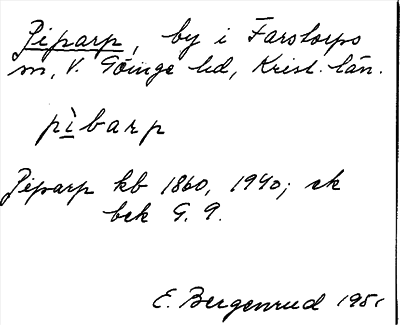 Piparp, by i Farstorps
sn, V. Göinge hd, Krist. län.
pìbarp
Piparp kb 1860, 1940; ek
bek G. 9.
E. Bergenrud 1951